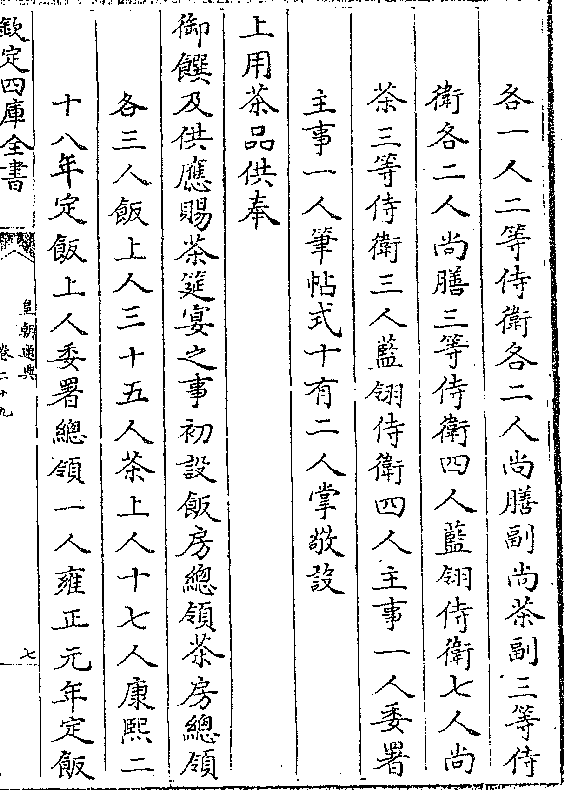 各一人二等侍衛各二人尚膳副尚茶副三等侍
衛各二人尚膳三等侍衛四人藍翎侍衛七人尚
茶三等侍衛三人藍翎侍衛四人主事一人委署
主事一人筆帖式十有二人掌敬設
上用茶品供奉
御饌及供應賜茶筵宴之事初設飯房總領茶房總領
各三人飯上人三十五人茶上人十七人康熙二
十八年定飯上人委署總領一人雍正元年定飯
欽定四庫全書
皇朝通典
卷二十九
七